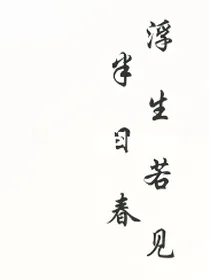 浮生若见
半日春